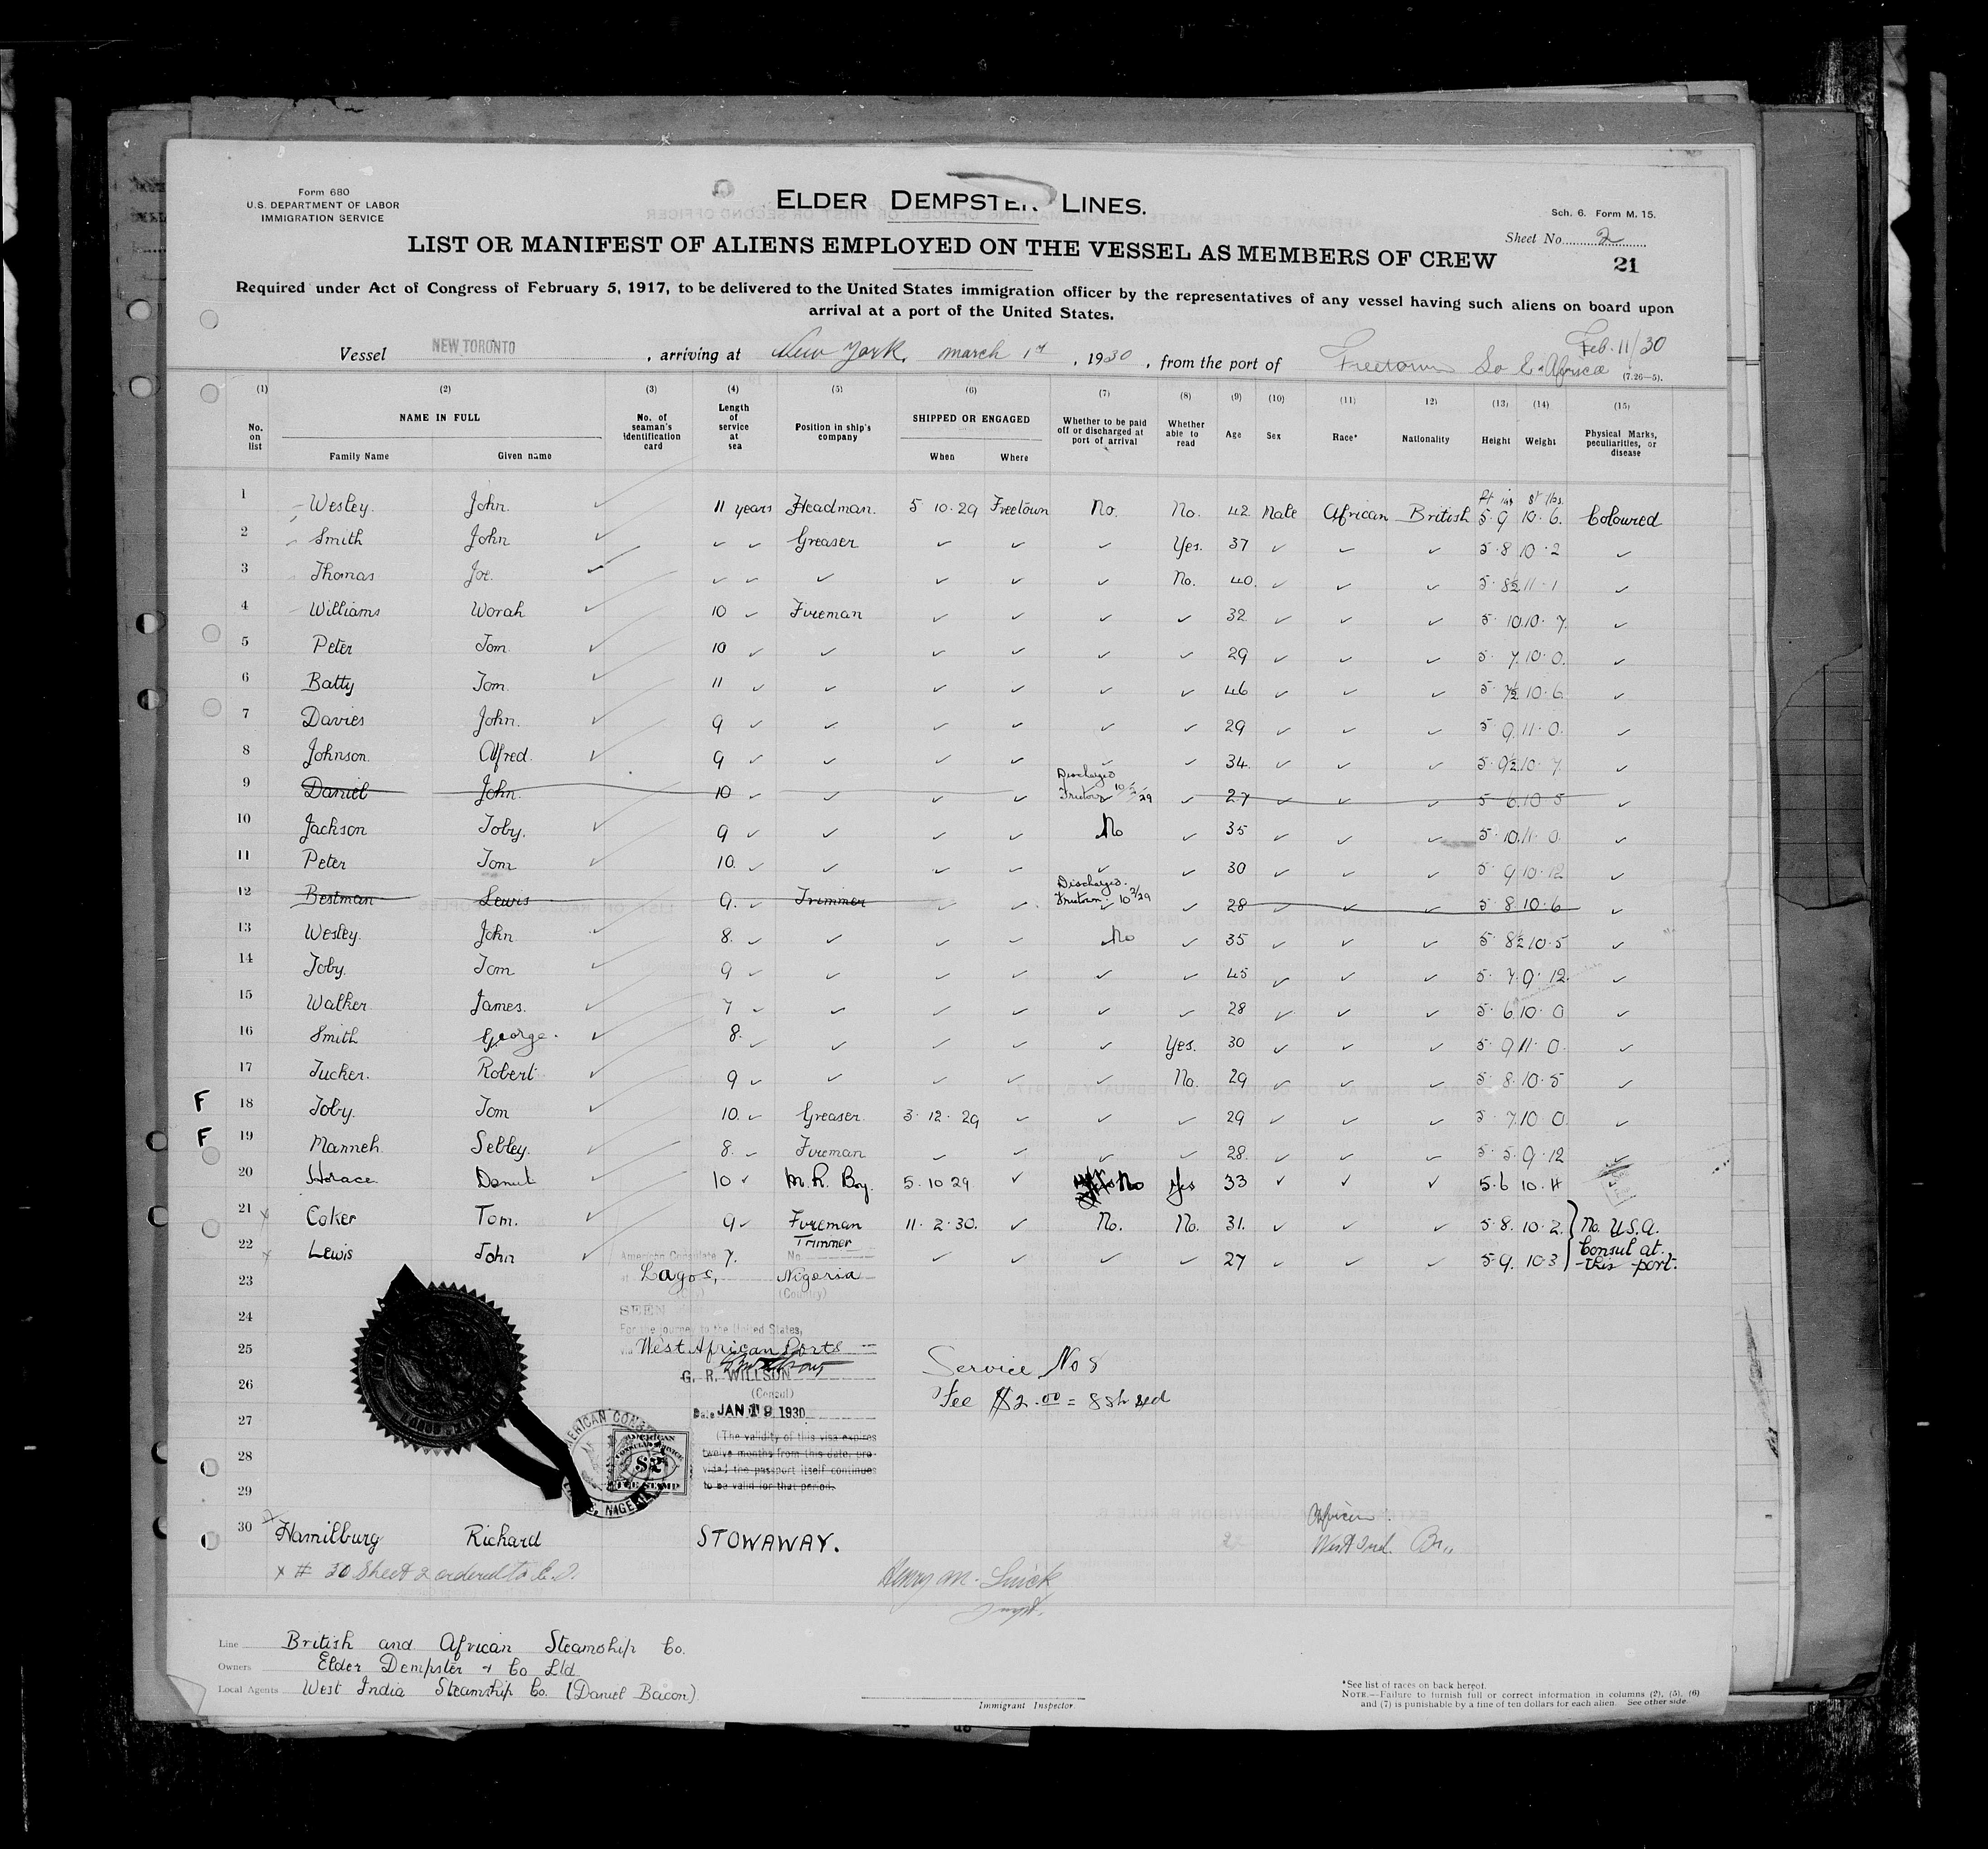 Form 680
U.S. DEPARTMENT OF LABOR
IMMIGRATION SERVICE
ELDER DEMPSTER LINES.
Sch. 6. Form M. 15.
Sheet No. 2
21
LIST OR MANIFEST OF ALIENS EMPLOYED ON THE VESSEL AS MEMBERS OF CREW
Required under Act of Congress of February 5, 1917, to be delivered to the United States immigration officer by the representatives of any vessel having such aliens on board upon
arrival at a port of the United States.
Vessel NEW TORONTO, arriving at New York, March 1st, 1930, from the port of Freetown Feb. 11/30
(7.26—5).
(1) (2) (3) (4) (5) (6) (7) (8) (9) (10) (11) 12) (13) (14) (15)
No. on list NAME IN FULL Family Name Given name No. of seaman's identification card Length of service at sea Position in ship's company SHIPPED OR ENGAGED When Where Whether to be paid off or discharged at port of arrival Whether able to read Age Sex Race* Nationality Height Weight Physical Marks, peculiarities, or disease
ft ins st lbs
1 Wesley John ✓ 11 years Headman. 5 10 29 Freetown No. No. 42 Male African British 5 9 10 6. Coloured
2 Smith John ✓ ✓ ✓ Greaser ✓ ✓ ✓ Yes. 37 ✓ ✓ ✓ 5 8 10 2 ✓
3 Thomas Joe. ✓ ✓ ✓ ✓ ✓ ✓ ✓ No. 40. ✓ ✓ ✓ 5 8½ 11 1 ✓
4 Williams Worah ✓ 10 ✓ Fireman ✓ ✓ ✓ ✓ 32 ✓ ✓ ✓ 5 10 10 7 ✓
5 Peter Tom ✓ 10 ✓ ✓ ✓ ✓ ✓ ✓ 29 ✓ ✓ ✓ 5 7 10 0. ✓
6 Batty Tom ✓ 11 ✓ ✓ ✓ ✓ ✓ ✓ 46 ✓ ✓ ✓ 5 7½ 10 6 ✓
7 Davies John. ✓ 9 ✓ ✓ ✓ ✓ ✓ ✓ 29 ✓ ✓ ✓ 5 9 11 0. ✓
8 Johnson Alfred ✓ 9 ✓ ✓ ✓ ✓ ✓ ✓ 34 ✓ ✓ ✓ 5 9½ 10 7 ✓
9 Daniel John 10 ✓ ✓ ✓ ✓ Discharged Freetown ✓ 27 ✓ ✓ ✓ 5 6 10 5 ✓
10 Jackson Toby. ✓ 9 ✓ ✓ ✓ ✓ No ✓ 35 ✓ ✓ ✓ 5 10 11 0 ✓
11 Peter Tom ✓ 10. ✓ ✓ ✓ ✓ ✓ ✓ 30 ✓ ✓ ✓ 5 9 10 12 ✓
12 Bestman Lewis 9. ✓ Trimmer ✓ ✓ Discharged. Freetown. ✓ 28 ✓ ✓ ✓ 5 8 10 6 ✓
13 Wesley John ✓ 8. ✓ ✓ ✓ ✓ No ✓ 35 ✓ ✓ ✓ 5 8½ 10 5 ✓
14 Toby. Tom ✓ 9 ✓ ✓ ✓ ✓ ✓ ✓ 45 ✓ ✓ ✓ 5 7 9 12 ✓
15 Walker James. ✓ 7 ✓ ✓ ✓ ✓ ✓ ✓ 28 ✓ ✓ ✓ 5 6 10 0 ✓
16 Smith George. ✓ 8. ✓ ✓ ✓ ✓ ✓ Yes. 30 ✓ ✓ ✓ 5 9 11 0. ✓
17 Tucker. Robert ✓ 9 ✓ ✓ ✓ ✓ ✓ No. 29 ✓ ✓ ✓ 5 8 10 5 ✓
F 18 Toby. Tom ✓ 10. ✓ Greaser. 3 12 29 ✓ ✓ ✓ 29 ✓ ✓ ✓ 5 7 10 0 ✓
F 19 Manneh Sebley. ✓ 8. ✓ Fireman ✓ ✓ ✓ ✓ 28 ✓ ✓ ✓ 5 5 9 12 ✓
20 Horace Danut ✓ 10 ✓ M.R. Boy. 5 10 29 ✓ No Yes 33 ✓ ✓ ✓ 5 6 10 11
21 x Coker Tom. ✓ 9 ✓ Fireman 11 2 30. ✓ No. No. 31. ✓ ✓ ✓ 5 8. 10 2. No. U.S.A.
22 x Lewis John ✓ 7. Trimmer ✓ ✓ ✓ ✓ 27 ✓ ✓ ✓ 5 9. 10 3 Consul at this port.
23
24
25
26
27
28
29
American Consulate No.
at Lagos, Nigeria
(City) (Country)
SEEN
For the journey to the United States,
via West African Ports
G. R. WILLSON
(Consul)
Date JAN 18 1930
(The validity of this visa expires
twelve months from this date, pro-
vided the passport itself continues
to be valid for that period.
Service No 8
Fee $2.00 = 8sh 4d
AMERICAN CONSULAR SERVICE
$2
FEE STAMP
30 x Hamilburg Richard STOWAWAY. African West Ind. Br.
x # 30 Sheet 2 ordered to
Henry M.
Line British and African Steamship Co.
Owners Elder Dempster & Co Ltd
Local Agents West India Steamship Co. (Daniel Bacon)
Immigrant Inspector.
*See list of races on back hereof.
NOTE.—Failure to furnish full or correct information in columns (2), (5), (6)
and (7) is punishable by a fine of ten dollars for each alien. See other side.